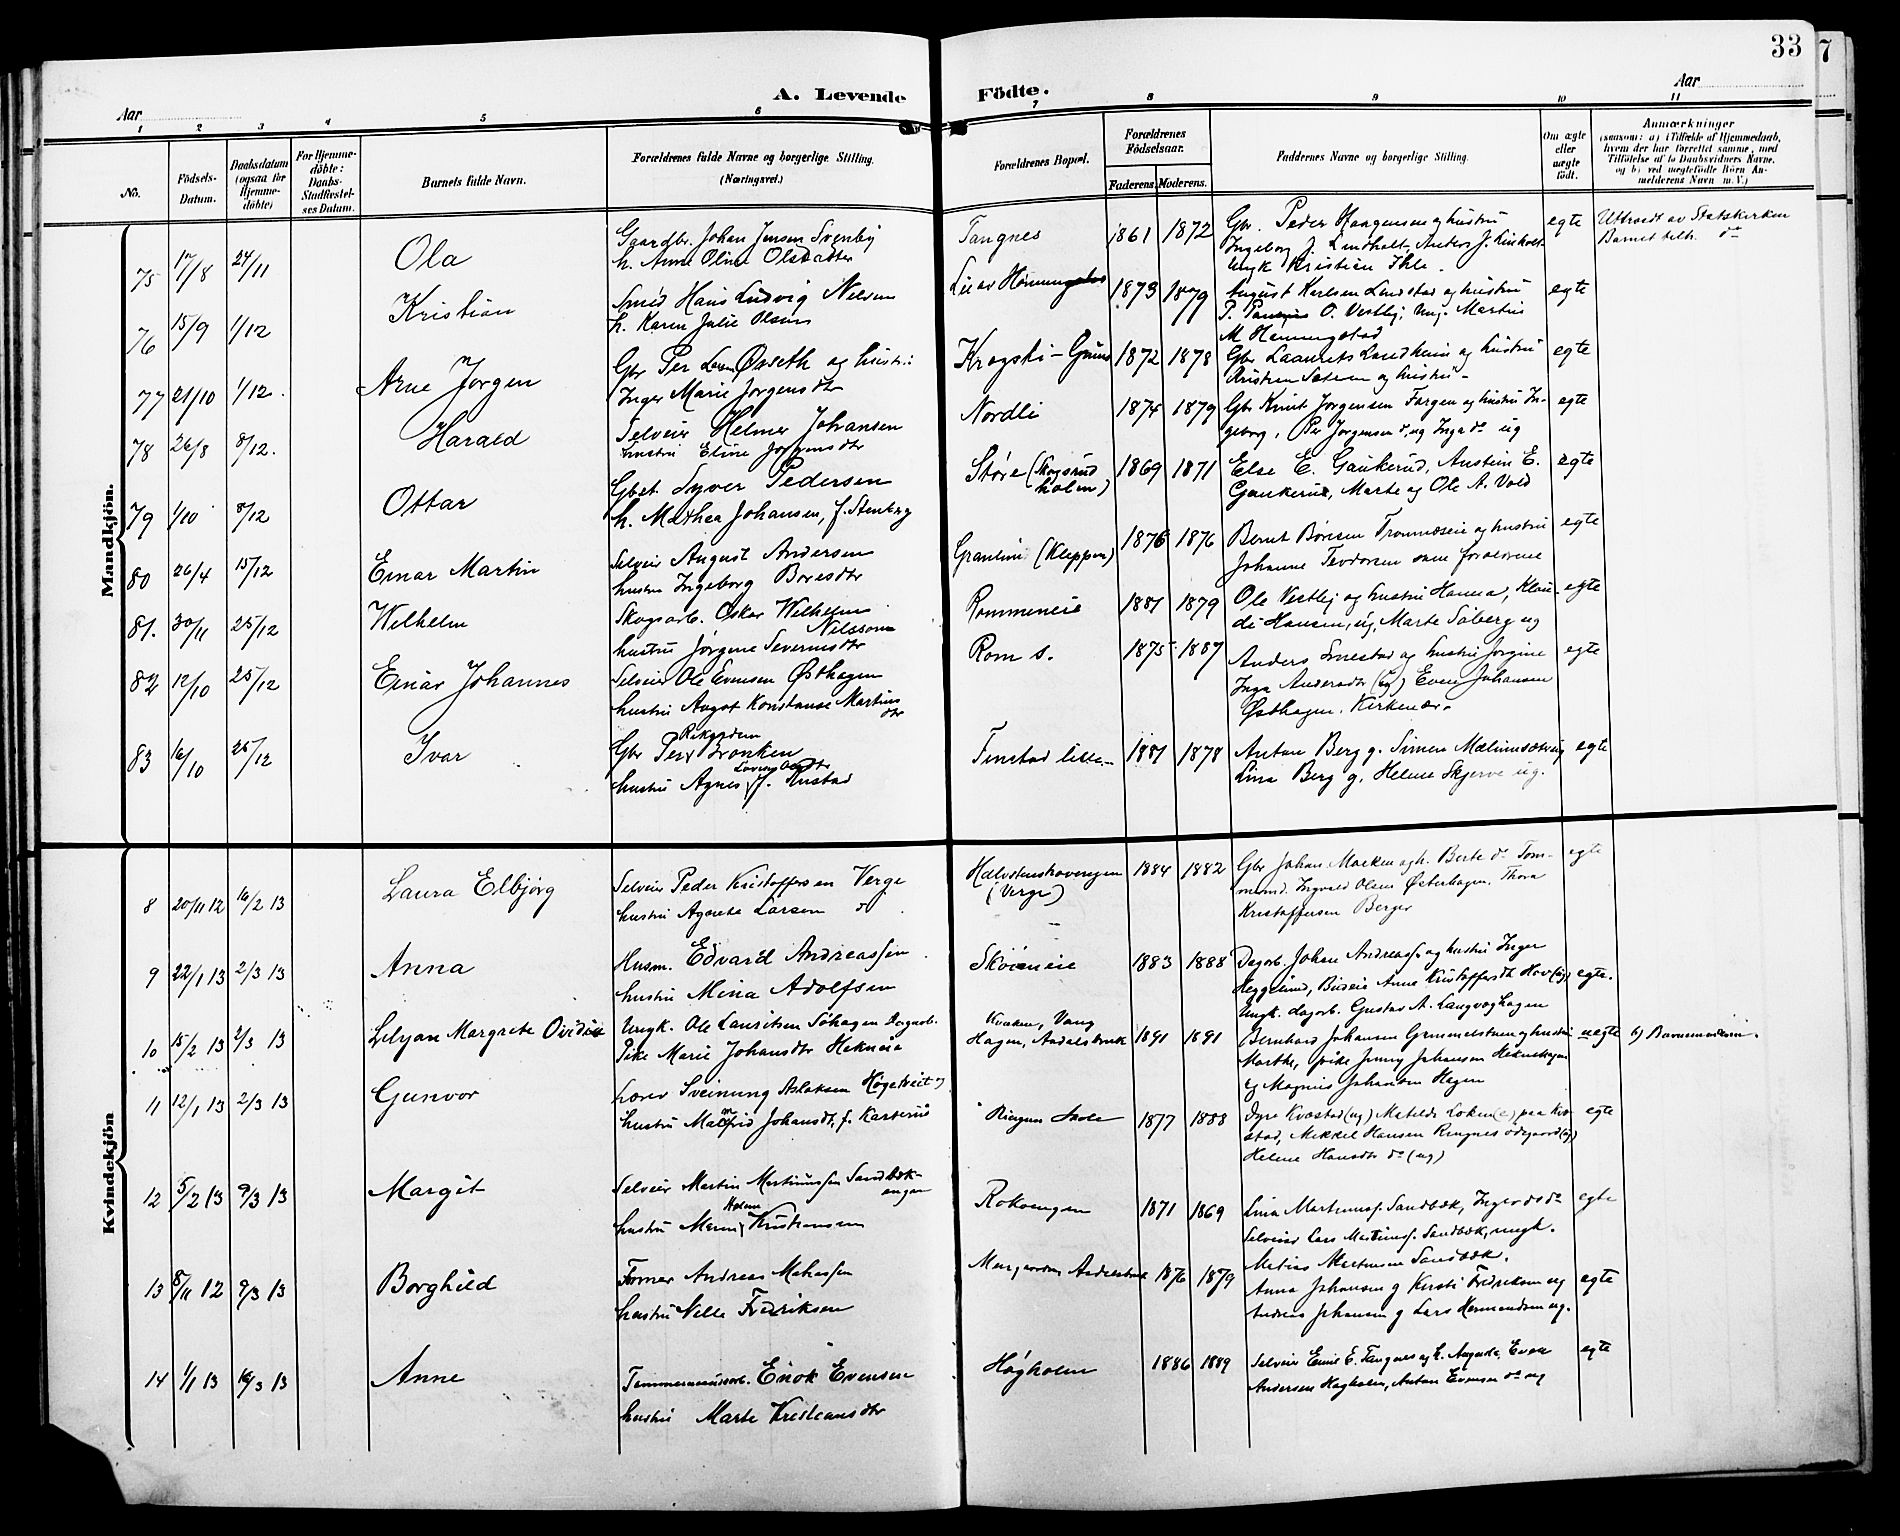 33 7
A. Levende Födte.
Aar Aar
1 2 3 4 5 6 7 8 9 10 11
No.
Födsels-Datum.
Daabsdatum (ogsaa for Hjemmedöbte)
For Hjemmedöbte: Daabs-Stadfæstelses Datum.
Barnets fulde Navn.
Forældrenes fulde Navne og borgerlige Stilling. (Næringsvei.)
Forældrenes Bopæl.
Forældrenes Födselsaar.
Faderens. Moderens.
Faddernes Navne og borgerlige Stilling.
Om ægte eller uægte födt.
Anmærkninger
(saasom: a) i Tilfælde af Hjemmedaab, hvem der har forrettet samme, med Tilföielse af to Daabsvidners Navne, og b) ved uægtefödte Börn Anmelderens Navn m. V.)
Mandkjön.
75 17/8 24/11 Ola
Gaardbr. Johan Jensen Svenby
h. Anne Oline Olsdatter
Tangnes 1861 1872
Gbr. Peder Haagensen og hustru
Ingeborg J. Lindholt. Anders J. Linholt
Ungk Kristian Ihle.
egte
Uttraadt av Statskirken
Barnet tilh. do
76 15/9 1/12 Kristian
Smed Hans Ludvig Nilsen
h. Karen Julie Olsen
1873 1879
August Karlsen Lundstad og hustru
P. O. Vestby, ung. Martin
M Hommerstad
egte
77 21/10 1/12. Arne Jørgen
Gbr Per Larsen Øvseth og hustru:
Inger Marie Jørgensdtr
1872 1878
Gbr Laurits Lundheim og hustru
Kristian Sæten og hustru
egte
78 26/8 8/12. Harald
Selveier Helmer Johansen
hustru Eline Jørgensdtr
Nordli 1874 1879
Gbr Knut Jørgensen Fargen og hustru In-
geborg, Per Jørgensen do, ug Inga do ug
egte
79 1/10 8/12 Ottar
Gbet. Syver Pedersen
h. Mathea Johansen, f. Stenberg
Støre (Skogsrud
holm)
1869 1871
Else E. Gaukerud, Austin E.
Gaukerud, Marte og Ole A. Vold
egte
80 26/4 15/12 Einar Martin
Selveier August Andersen
hustru Ingeborg Boresdtr
Granlien (Kleppen) 1876 1876
Bernt Børesen Trommæseie og hustru
Johanne Teodorsen som foreldrene
egte
81. 30/11 25/12 Wilhelm
Skogsarb. Oskar Wilhelm
Nilsson
hustru Jørgine Severinsdtr
Rommeneie 1881 1879
Ole Vestby og hustru Hanna, Klau-
di Hansen, ug, Marte Søberg ug
egte
82 12/10 25/12 Einar Johannes
Selveier Ole Evensen Østhagen
hustru Augot Konstanse Martins
dtr
Rom s. 1875 1887
Anders Smestad og hustru Jørgine
Inga Andersdtr (ug) Even Johansen
Østhagen, Kirkenær.
egte
83 16/10 25/12 Ivar
Gbr Per Rikardsen Bronken
hustru Agnes Lovise Olsdtr f. Finstad
Finstad lille 1881 1878
Anton Berg g. Simen Mælumsætrug
Lina Berg g, Helene Skjerve ug.
egte
Kvindekjön
8 20/11 12 16/2 13 Laura Elbjørg
Selveier Peder Kristoffersen Verge
hustru Agnete Larsen do
(Verge)
1884 1882
Gbr Johan Moeken og h. Berte do Tom-
mund. Ingvald Olsen Østerhagen. Thora
Kristoffersen Berger
egte
9 22/1 13 2/3 13 Anna
Husm. Edvard Andreassen
hustru Mina Adolfsen
Skøieneie 1883 1888
Dagarb. Johan Andreass. og hustru Inger
Heggelund, Budeie Anne Kristoffersdtr Hov (ug)
Ungk. dagarb. Gustav A. Langvaghagen
egte.
10 15/2 13 2/3 13 Lilyan Margrete Ovidia
Ungk. Ole Lauritsen Søhagen Dagarb.
Pike Marie Johansdtr Hekneia
Kvaken, Vang
Hagen, Aadalsbruk
1891 1891
Bernhard Johansen Grimmelstuen og hustru
Marthe, pike Jenny Johansen Hekneshagen
og Magnus Johansen Hagen
uegte b) Barnemoderen.
11 12/1 13 2/3 13 Gunvor
Lærer Sveinung Aslaksen Høgetveit og
hustru Malmfrid Johansdtr, f. Karterud
Ringnes Skole 1877 1888
Dyre Kvæstad (ug) Matilde Løken (e) paa Kve-
stad, Mikkel Hansen Ringnes ødegaard (ug)
Helene Hansdtr do (ug)
egte
12 5/2 13 9/3 13 Margit
Selveier Martin Martinussen Sandbæk-
engen
hustru Maren Helene Kristiansen
Rokoengen 1871 1869
Lina Martinuss. Sandbæk, Inger do
Selveier Lars Martinuss. Sandbæk, ungk.
Matias Martinsen Sandbæk.
egte
13 8/11 12 9/3 13 Borghild
Former Andreas Mathissen
hustru Nelle Fredriksen
Aadalsbruk 1876 1879
Anna Johansen g Kirsti Fredriksen ug
Andreas Johansen g Lars Hermandsen ug.
egte
14 1/1 13 16/3 13 Anne
Tømmermandsarb. Enok Evensen
hustru Marte Kristiansdtr
Høgholm 1886 1889
Selveier Emil E. Tangnes og h. Augusta, Even
Andersen Høgholm, Anton Evensen do ug
egte